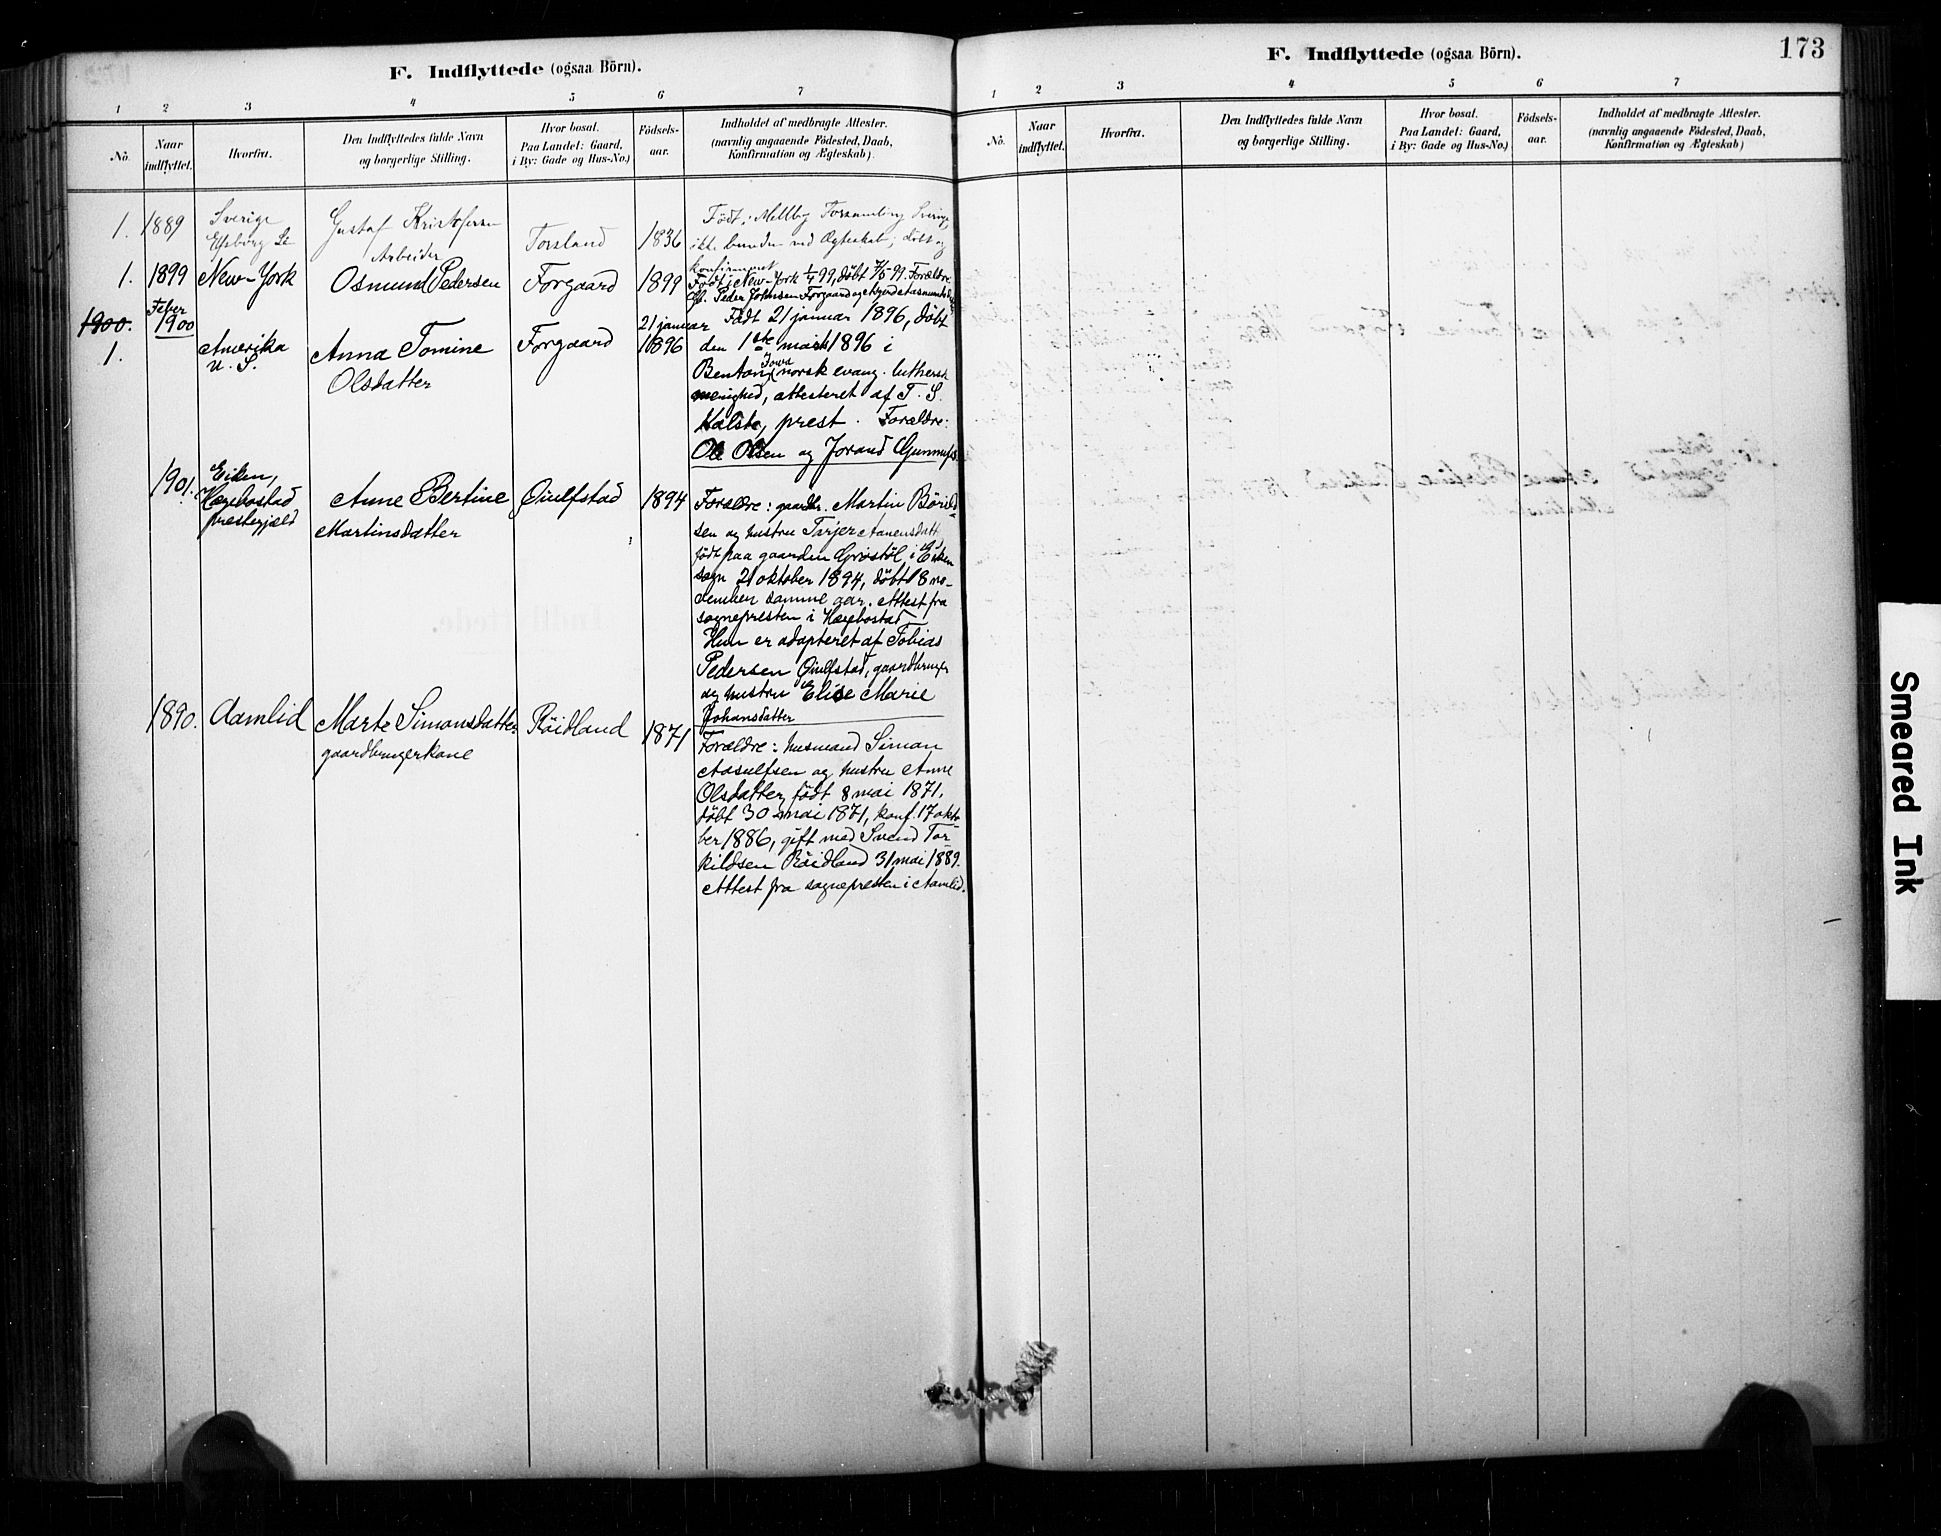 F. Indflyttede (ogsaa Börn).
1 2 3 4 5 6 7
No. Naar indflyttet. Hvorfra. Den Indflyttedes fulde Navn og borgerlige Stilling. Hvor bosat. Paa Landet: Gaard, i By: Gade og Hus-No.) Födsels-aar. Indholdet af medbragte Attester. (navnlig angaaende Födested, Daab, Konfirmation og Ægteskab)
1. 1889 Sverige Gustaf Kristofersen Torsland 1836 Født i Mellby Forsamling Sverige,
Elfsborg Arbeider
ikke bunden ved Ægteskab; døbt og
konfirmeret
1. 1899 New-York Osmund Pedersen Forgaard 1899 Født i New-York 1/4 99, døbt 7/5 99. Forældre
Peder Johnsen Forgaard og
1900. Feber 1900
1. Amerika U. S. Anna Tomine Olsdatter Forgaard 21 januar 1896
Født 21 januar 1896, døbt
den 1ste marts 1896 i
Benton Iowa norsk evang. luthersk
menighed, attesteret af T. S.
prest. Forældre:
Ole Olsen og Jorand Gunnufs.
1901. Eiken, Hægebostad prestegjæld Anne Bertine Martinsdatter Øiulfstad 1894
Forældre: gaardbr. Martin Bårild-
sen og hustru Tarjer Aanensdatt.
født paa gaarden Grøstöl, i Eiken
sogn 21 oktober 1894, døbt 18 no-
vember samme aar. Attest fra
sognepresten i Hægebostad.
Hun er adopteret af Tobias
Pedersen Øiulfstad, gaardbruger
og hustru Elise Marie
Johansdatter
1890. Aamlid Marte Simonsdatter gaardbrugerkone Röidland 1871
Forældre: husmand Simon
Aasulfsen og hustru Anne
Olsdatter, født 8 mai 1871,
døbt 30 mai 1871, konf. 17 okto-
ber 1886, gift med Svend Tor-
kildsen Röidland 31 mai 1889.
Attest fra sognepresten i Aamlid.
F. Indflyttede (ogsaa Börn).
173
1 2 3 4 5 6 7
No. Naar indflyttet. Hvorfra. Den Indflyttedes fulde Navn og borgerlige Stilling. Hvor bosat. Paa Landet: Gaard, i By: Gade og Hus-No.) Födsels-aar. Indholdet af medbragte Attester. (navnlig angaaende Födested, Daab, Konfirmation og Ægteskab)
Smeared Ink